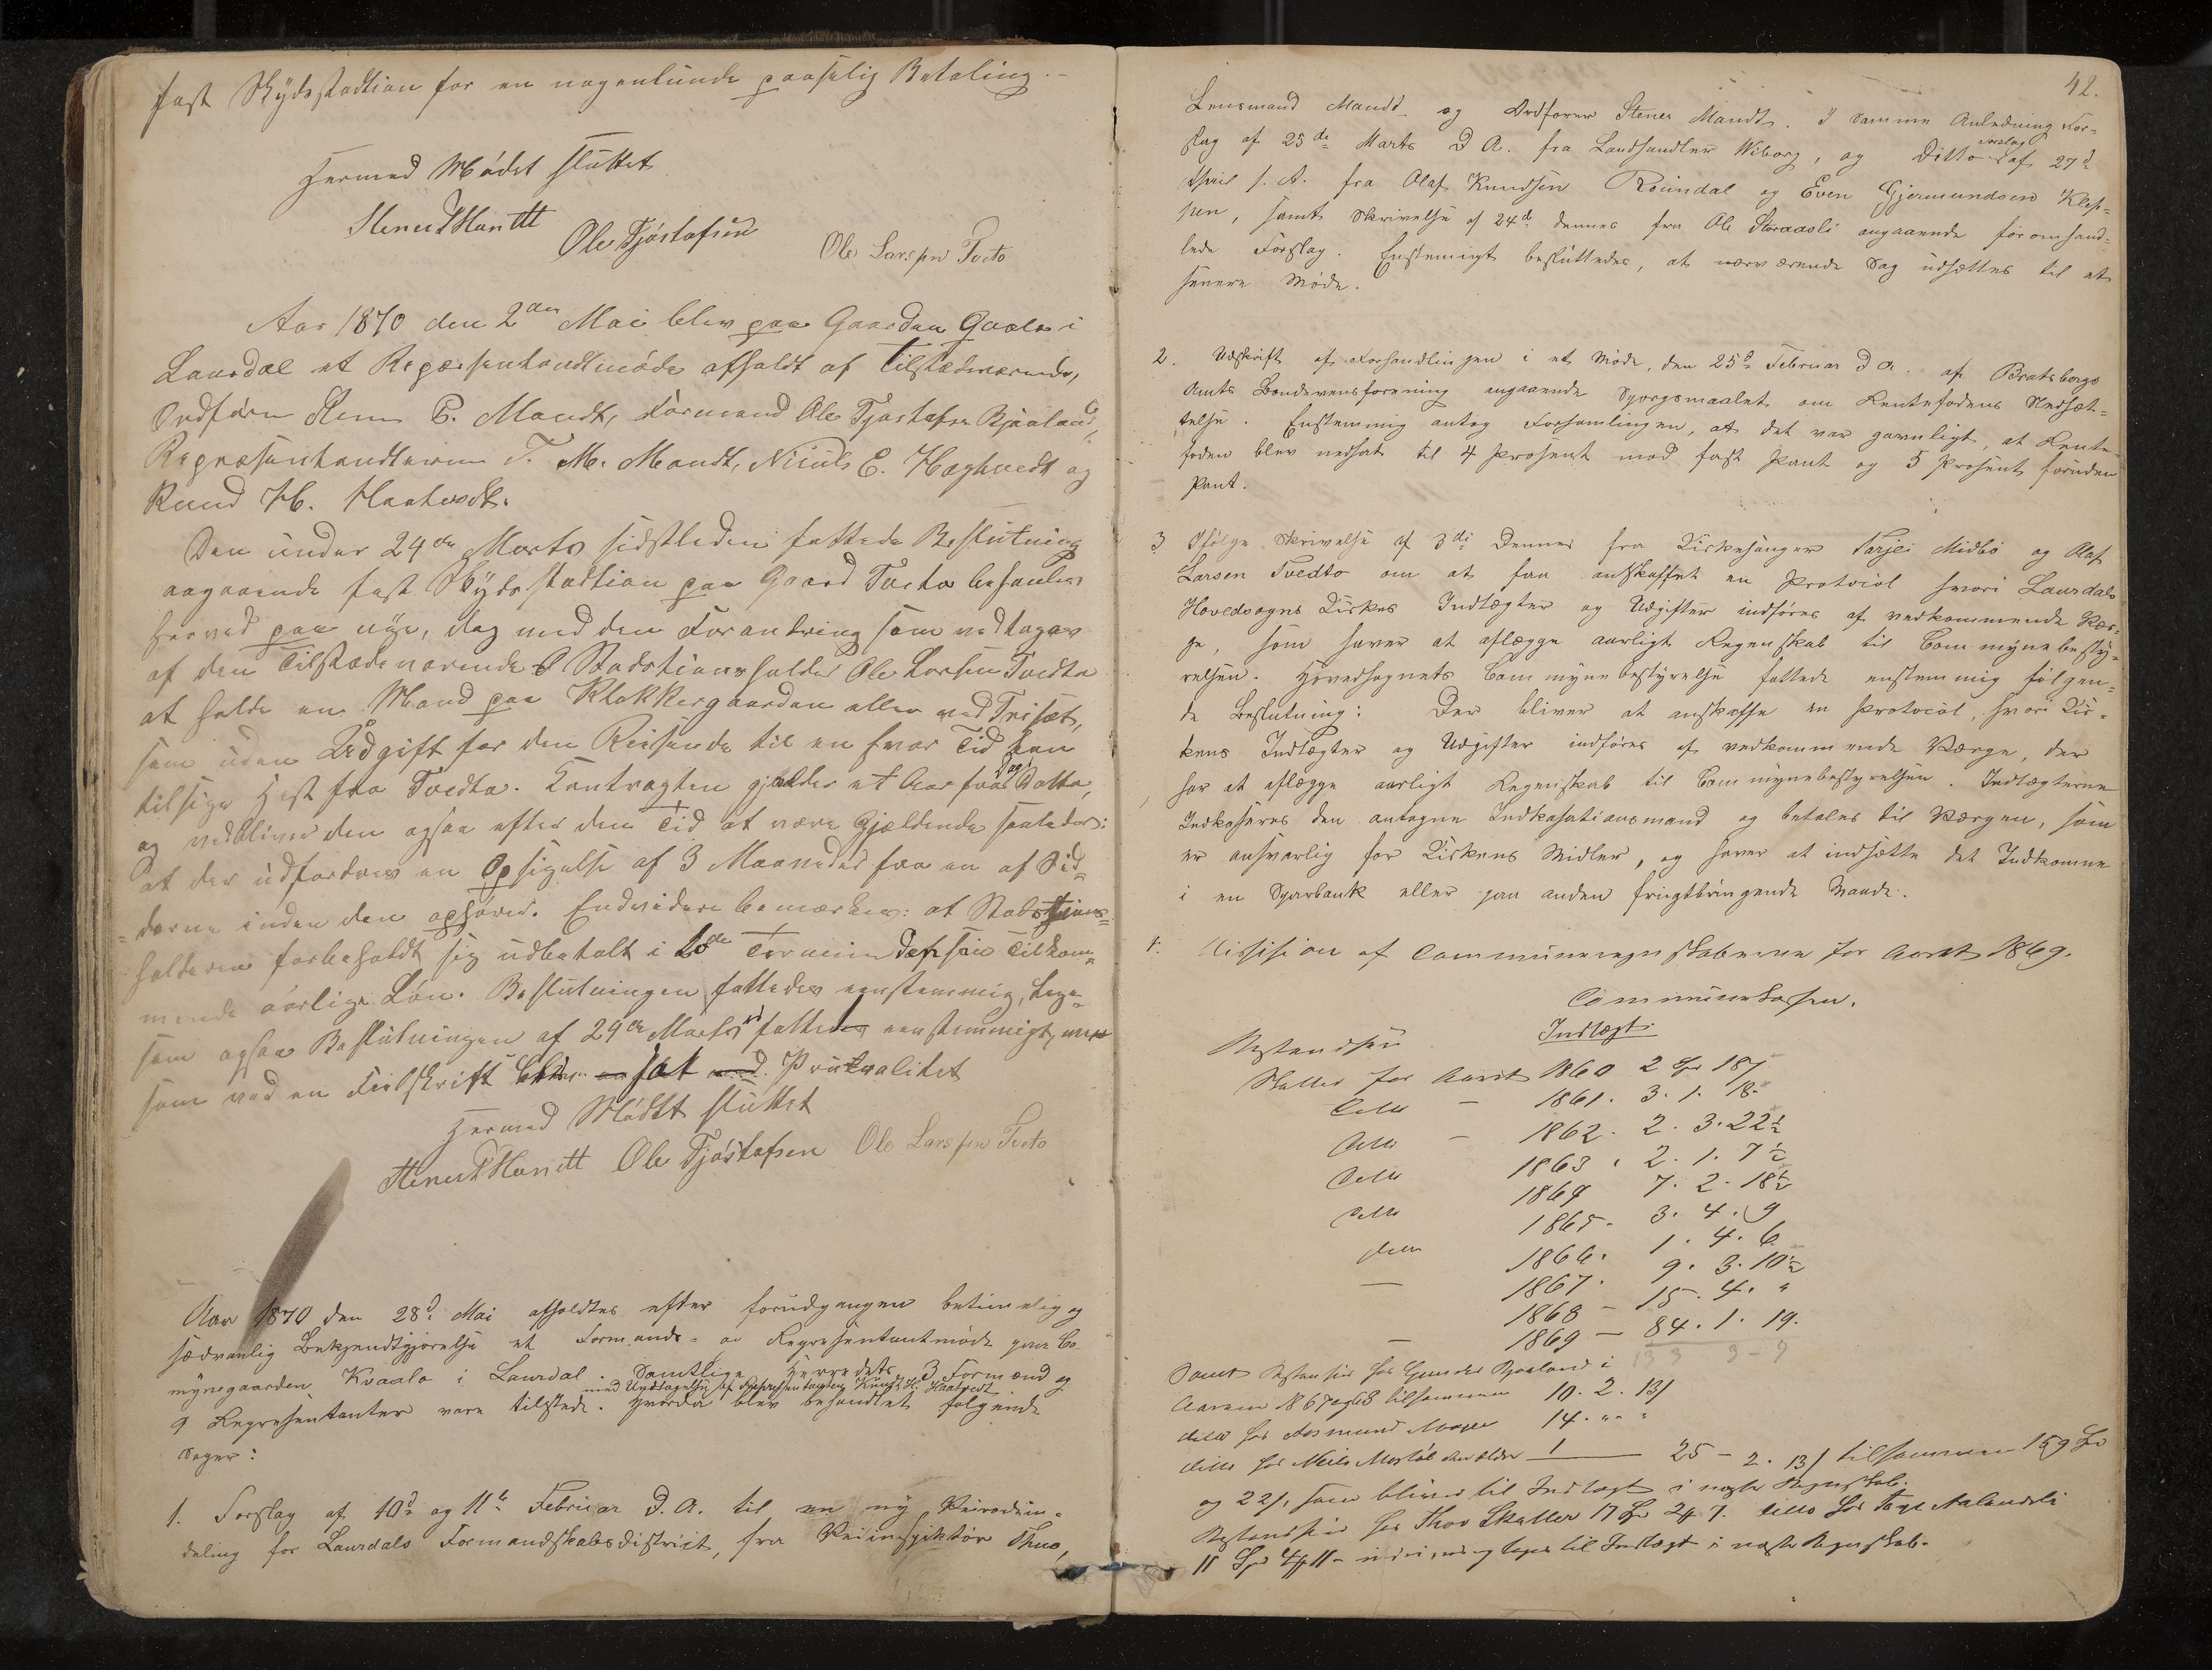 fast Skydsstadtion for en nogenlunde paaselig Betaling.
Hermed Mødet sluttet
Stener T Mandt Ole Tjøstofsen Ole Larssen Tveto
Aar 1870 den 2den Mai blev paa Gaarden Qvale i
Laurdal et Repræsenhandtmøde afholdt af tilstedeværende,
Ordfører Stener P. Mandt, Formand Ole Tjøstofsen Bjåland,
Repræsenhandterne T. M. Mandt, Niculs E. Høghvedt og
Knud H. Haatvedt.
Den under 24de Marts sidstleden fattede Beslutning
angaaende fast Skydsstadtion paa Gaard Tveto behandles
herved paa nye, dog med den Forandring som vedtages
af den Tilstædeværende Stadstionsholder Ole Larsen Tvedto
at holde en Mand paa Klokkergaarden eller ved Trisæt,
som uden Udgift for den Reisende til en hver Tid kan
tilsige Hest fra Tvedto. Contragten gjælder et Aar fra Dags Datto,
og vedbliver den ogsaa efter den Tid at være Gjældende saaledes:
at der udfordres en Opsigelse af 3 Maaneder fra en af Sid-
derne inden den ophører. Endvidere bemærkes: at Stadstions-
holderen forbeholdt sig udbetalt i hver Termin den sin Tilkom-
mende aarlige Løn. Beslutningen fattedes eenstemmig, lige-
som ogsaa Beslutningen af 24de Marts fattedes eenstemmigt, men
som ved en Feilskrift blev sat Pruralitet
Hermed Mødet sluttet
Stener T Mandt Ole Tjøstofsen Ole Larssen Tveto
Aar 1870 den 28d Mai afholdtes efter forudgangen betimelig og
sædvanlig Bekjendtgjørelse et Formands- og Repræsentantmøde paa Co-
mynegaarden Kvaalo i Laurdal. Samtlige Herredets 3 Formænd og
med Undtagelse af Repræsentanten Knud H. Haatvedt
9 Repræsentanter vare tilstede. Hvorda blev behandlet følgende
Sager:
1. Forslag af 10d og 11te Februar D. A. til en ny Veirodein-
deling for Laurdals Formandskabsdistrict, fra Veiinspiktør Thue,
42.
Lensmand Mandt og Ordfører Stener Mandt. I samme Anledning For-
slag af 25de Marts D A. fra Landhandler Wiborg, og Ditto Forslag af 27d
April s. A. fra Olaf Knudsen Roundal og Even Gjermundsen Klep-
pen, samt Skrivelse af 24d dennes fra Ole Storaasli angaaende foromhand-
lede Forslag. Enstemigt besluttedes, at nærværende Sag udsættes til et
senere Møde.
2. Udskrift af Forhandlingen i et Møde, den 25d Februar D A. af Bratsbergs
Amts Bondevensforening angaaende Spørgsmaalet om Rentefodens Nedsæt-
telse. Enstemmig antog Forsamlingen, at det var gavnligt, at Rente-
foden blev nedsat til 4 Prosent mod fast Pant og 5 Prosent foruden
Pant.
3 Ifølge Skrivelse af 3di Dennes fra Kirkesanger Tarjei Midbø og Olaf
Larsen Tvedto om at faa anskaffet en Protocol hvori Laurdals
Hovedsogns Kirkes Indtægter og Udgifter indføres af vedkommende Vær-
ge, som haver at aflægge aarligt Regenskab til Commynebesty-
relsen. Hovedsognets Commynebestyrelse fattede enstemmig følgen-
de Beslutning: Der bliver at anskaffe en Protocol, hvori Kir-
kens Indtægter og Udgifter indføres af vedkommende Værge, der
har at aflægge aarligt Regenskab til Commynebestyrelsen. Indtægterne
Indkaseres den antagne Indkasationsmand og betales til Værgen, som
er ansvarlig for Kirkens Midler, og haver at indsætte det Indkomne
i en Sparbank eller paa anden frugtbringende Maade.
4. Revision af Communeregnskaberne for Aaret 1869.
Communekassen.
Restandsen Indtægt
Skatter for Aaret 1860 2 Spd 18
Ditto – 1861. 3. 1. 18
Ditto – 1862. 2. 3. 22½
Ditto 1863. 2. 1. 7½
Ditto 1864 7. 2. 18½
Ditto 1865. 3. 4. 9
1866. 1. 4. 6
— 1867. 9. 3. 10½
1868 – 15. 4. "
— 1869 – 84. 1. 19.
133 3-9
Samt Restanse hos Gunder Bjaaland i
Aarene 1867 og 68 tilsammen 10. 2. 13
ditto hos Aasmund 14. " "
ditto hos Neils den ældre 1 — 25 – 2. 13 tilsammen 159 Spd
og 22, som bliver til Indtægt i næste Regnskab.
Restandsen hos Thov Skatter 17 Spd 2 7. ditto hos
11 Spd 4 11 til Indtægt i næste Regnskab.